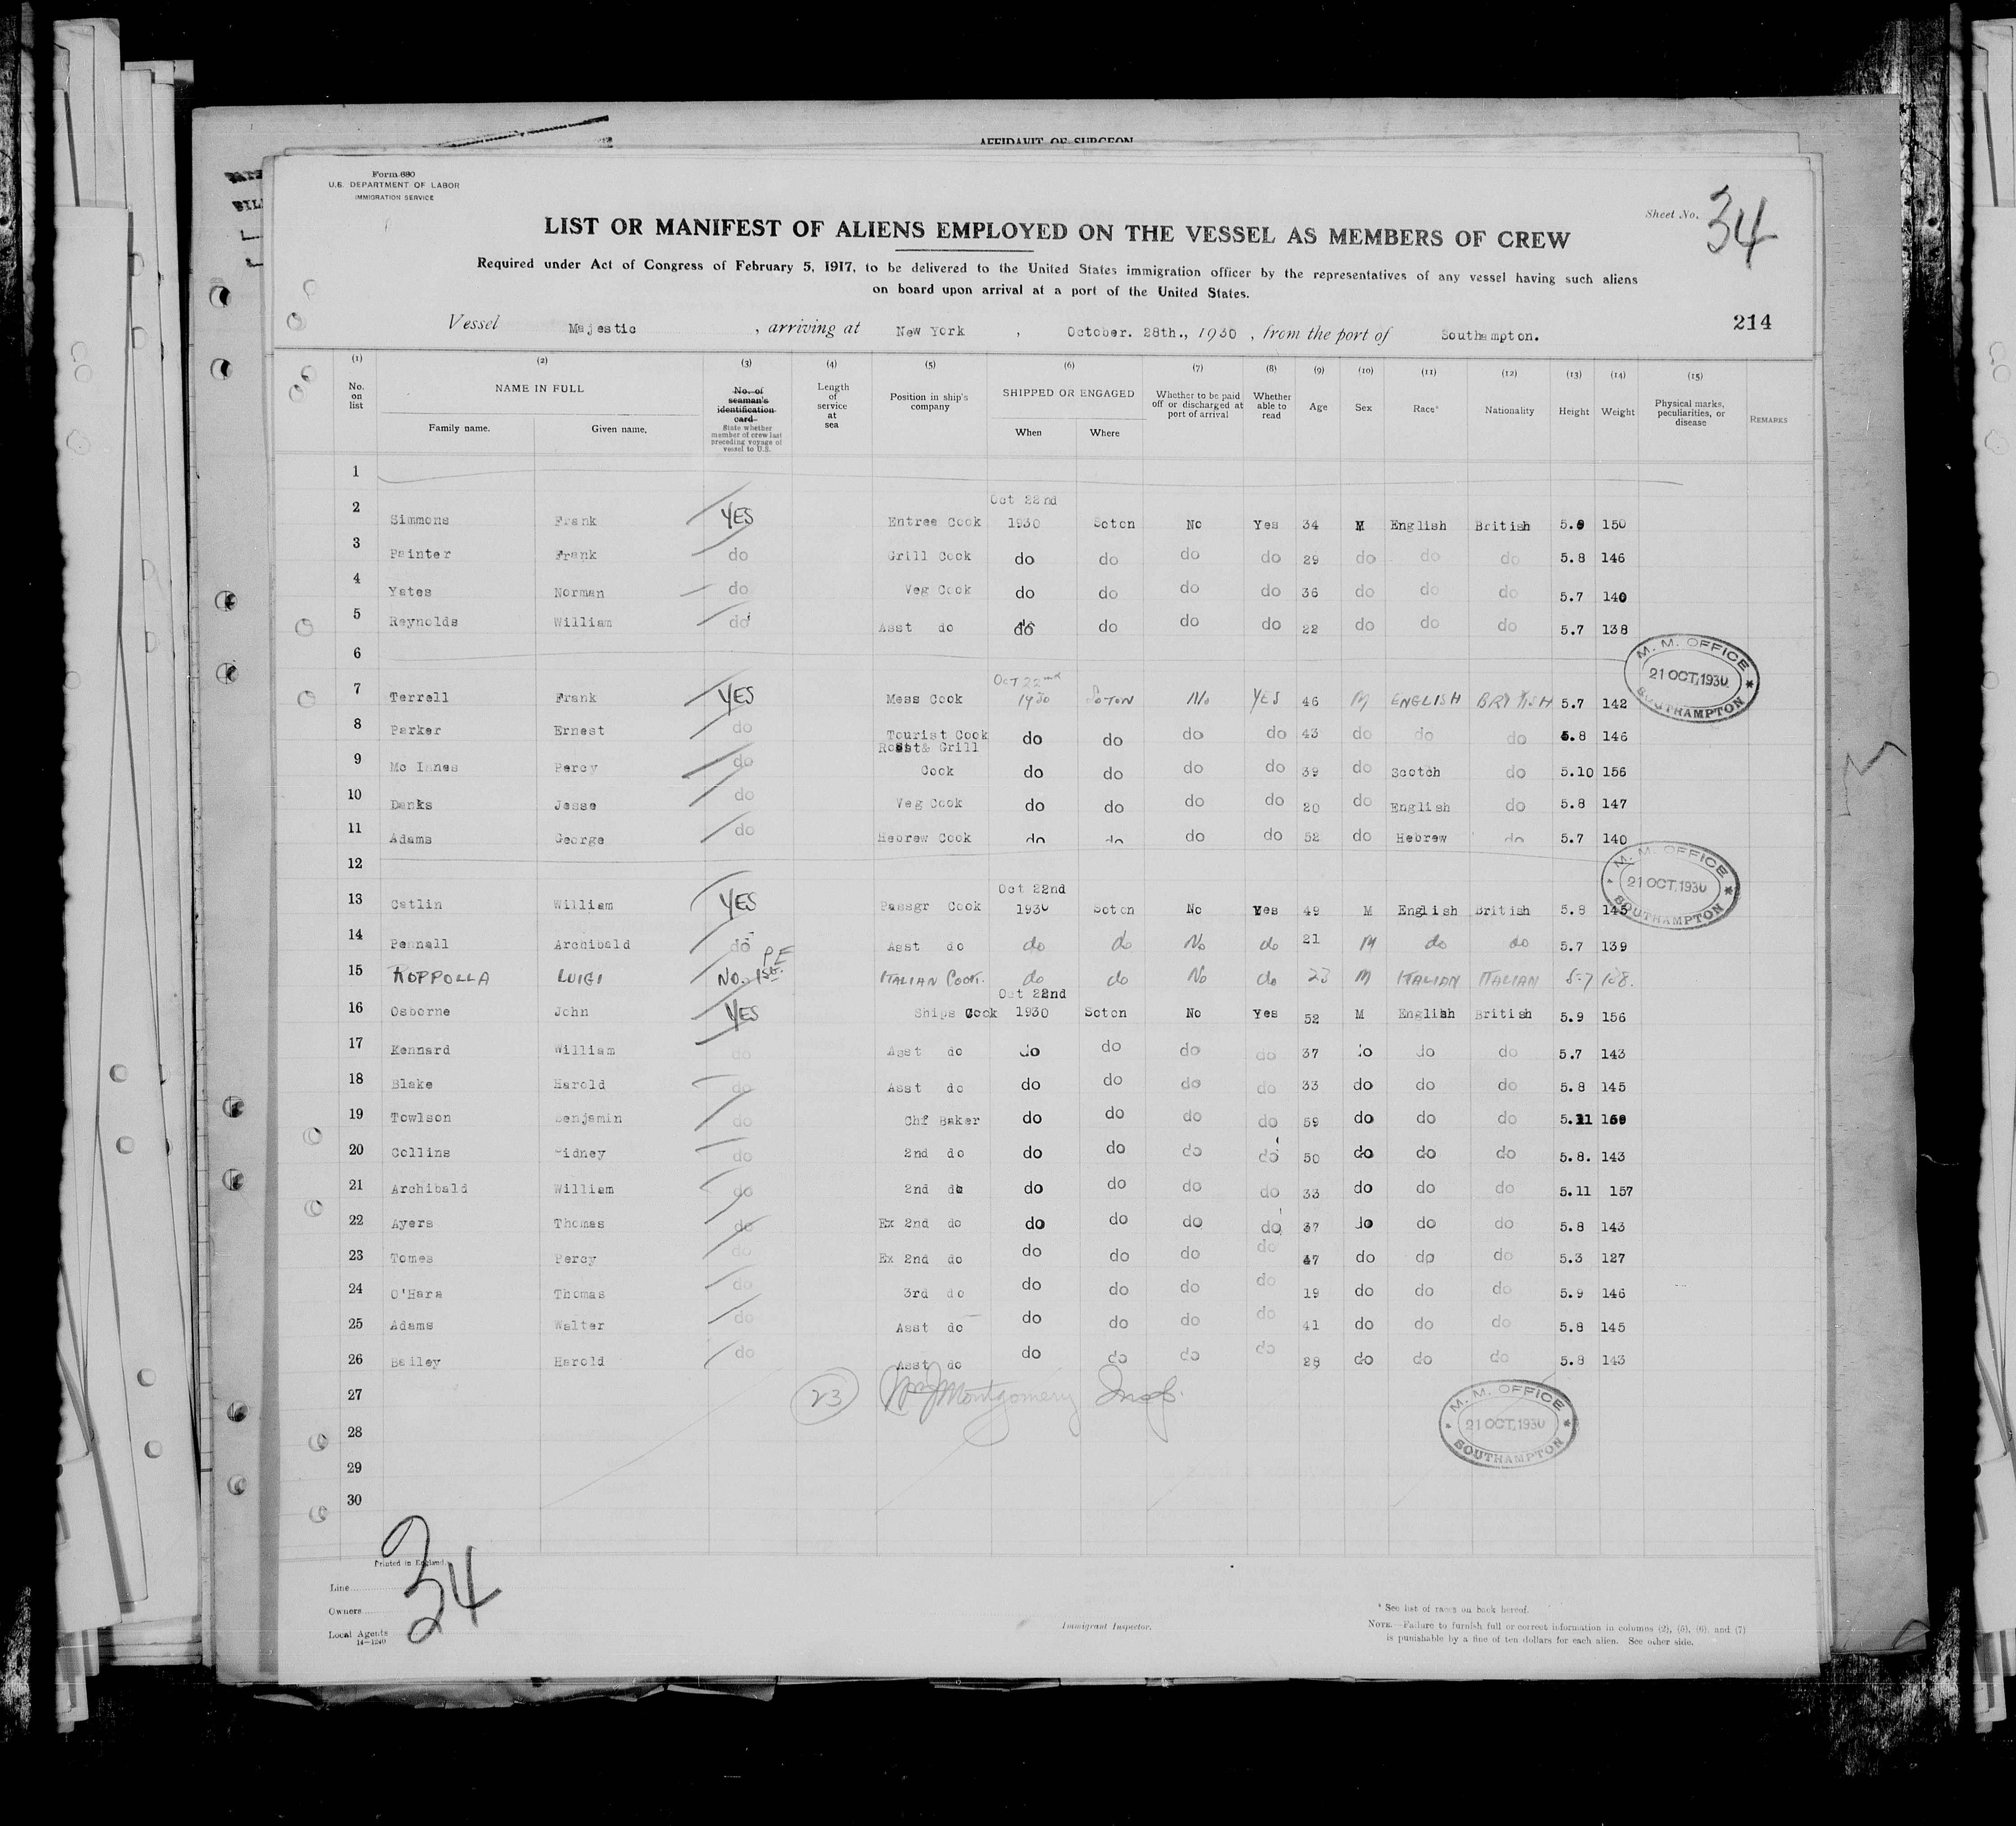 AFFIDAVIT OF SURGEON
Form 680
U.S. DEPARTMENT OF LABOR
IMMIGRATION SERVICE
Sheet No. 34
LIST OR MANIFEST OF ALIENS EMPLOYED ON THE VESSEL AS MEMBERS OF CREW
Required under Act of Congress of February 5, 1917, to be delivered to the United States immigration officer by the representatives of any vessel having such aliens
on board upon arrival at a port of the United States.
214
Vessel Majestic , arriving at New York , October. 28th., 1930 , from the port of Southampton.
(1) (2) (3) (4) (5) (6) (7) (8) (9) (10) (11) (12) (13) (14) (15)
No. on list NAME IN FULL Family name. Given name. No. of seaman's identification card State whether member of crew last preceding voyage of vessel to U.S. Length of service at sea Position in ship's company SHIPPED OR ENGAGED When Where Whether to be paid off or discharged at port of arrival Whether able to read Age Sex Race* Nationality Height Weight Physical marks, peculiarities, or disease REMARKS
1
2 Simmons Frank YES Entree Cook Oct 22nd 1930 Soton No Yes 34 M English British 5.9 150
3 Painter Frank do Grill Cook do do do do 29 do do do 5.8 146
4 Yates Norman do Veg Cook do do do do 36 do do do 5.7 140
5 Reynolds William do Asst do do do do do 22 do do do 5.7 138
6
M. M. OFFICE
21 OCT.1930
SOUTHAMPTON
7 Terrell Frank YES Mess Cook Oct 22nd 1930 SOTON No YES 46 M ENGLISH BRITISH 5.7 142
8 Parker Ernest do Tourist Cook do do do do 43 do do do 5.8 146
9 Mc Innes Percy do Roast & Grill Cook do do do do 39 do Scotch do 5.10 156
10 Danks Jesse do Veg Cook do do do do 20 do English do 5.8 147
11 Adams George do Hebrew Cook do do do do 52 do Hebrew do 5.7 140
12
M. M. OFFICE
21 OCT.1930
SOUTHAMPTON
13 Catlin William YES Passgr Cook Oct 22nd 1930 Soton No Yes 49 M English British 5.8 145
14 Pennall Archibald do Asst do do do No do 21 M do do 5.7 139
15 ROPPOLLA LUIGI NO. 1st. P.E ITALIAN COOK. do do No do 23 M ITALIAN ITALIAN 5-7
16 Osborne John YES Ships Cook Oct 22nd 1930 Soton No Yes 52 M English British 5.9 156
17 Kennard William do Asst do do do do do 37 do do do 5.7 143
18 Blake Harold do Asst do do do do do 33 do do do 5.8 145
19 Towlson Benjamin do Chf Baker do do do do 59 do do do 5.11
20 Collins Sidney do 2nd do do do do do 50 do do do 5.8. 143
21 Archibald William do 2nd do do do do do 33 do do do 5.11 157
22 Ayers Thomas do Ex 2nd do do do do do 37 do do do 5.8 143
23 Tomes Percy do Ex 2nd do do do do do 47 do do do 5.3 127
24 O'Hara Thomas do 3rd do do do do do 19 do do do 5.9 146
25 Adams Walter do Asst do do do do do 41 do do do 5.8 145
26 Bailey Harold do Asst do do do do do 28 do do do 5.8 143
27 23 Montgomery Insp.
28
M. M. OFFICE
21 OCT.1930
SOUTHAMPTON
29
30
34
Printed in England.
Line
Owners
Local Agents
14—1240
Immigrant Inspector.
* See list of races on back hereof.
NOTE.—Failure to furnish full or correct information in columns (2), (5), (6), and (7)
is punishable by a fine of ten dollars for each alien. See other side.